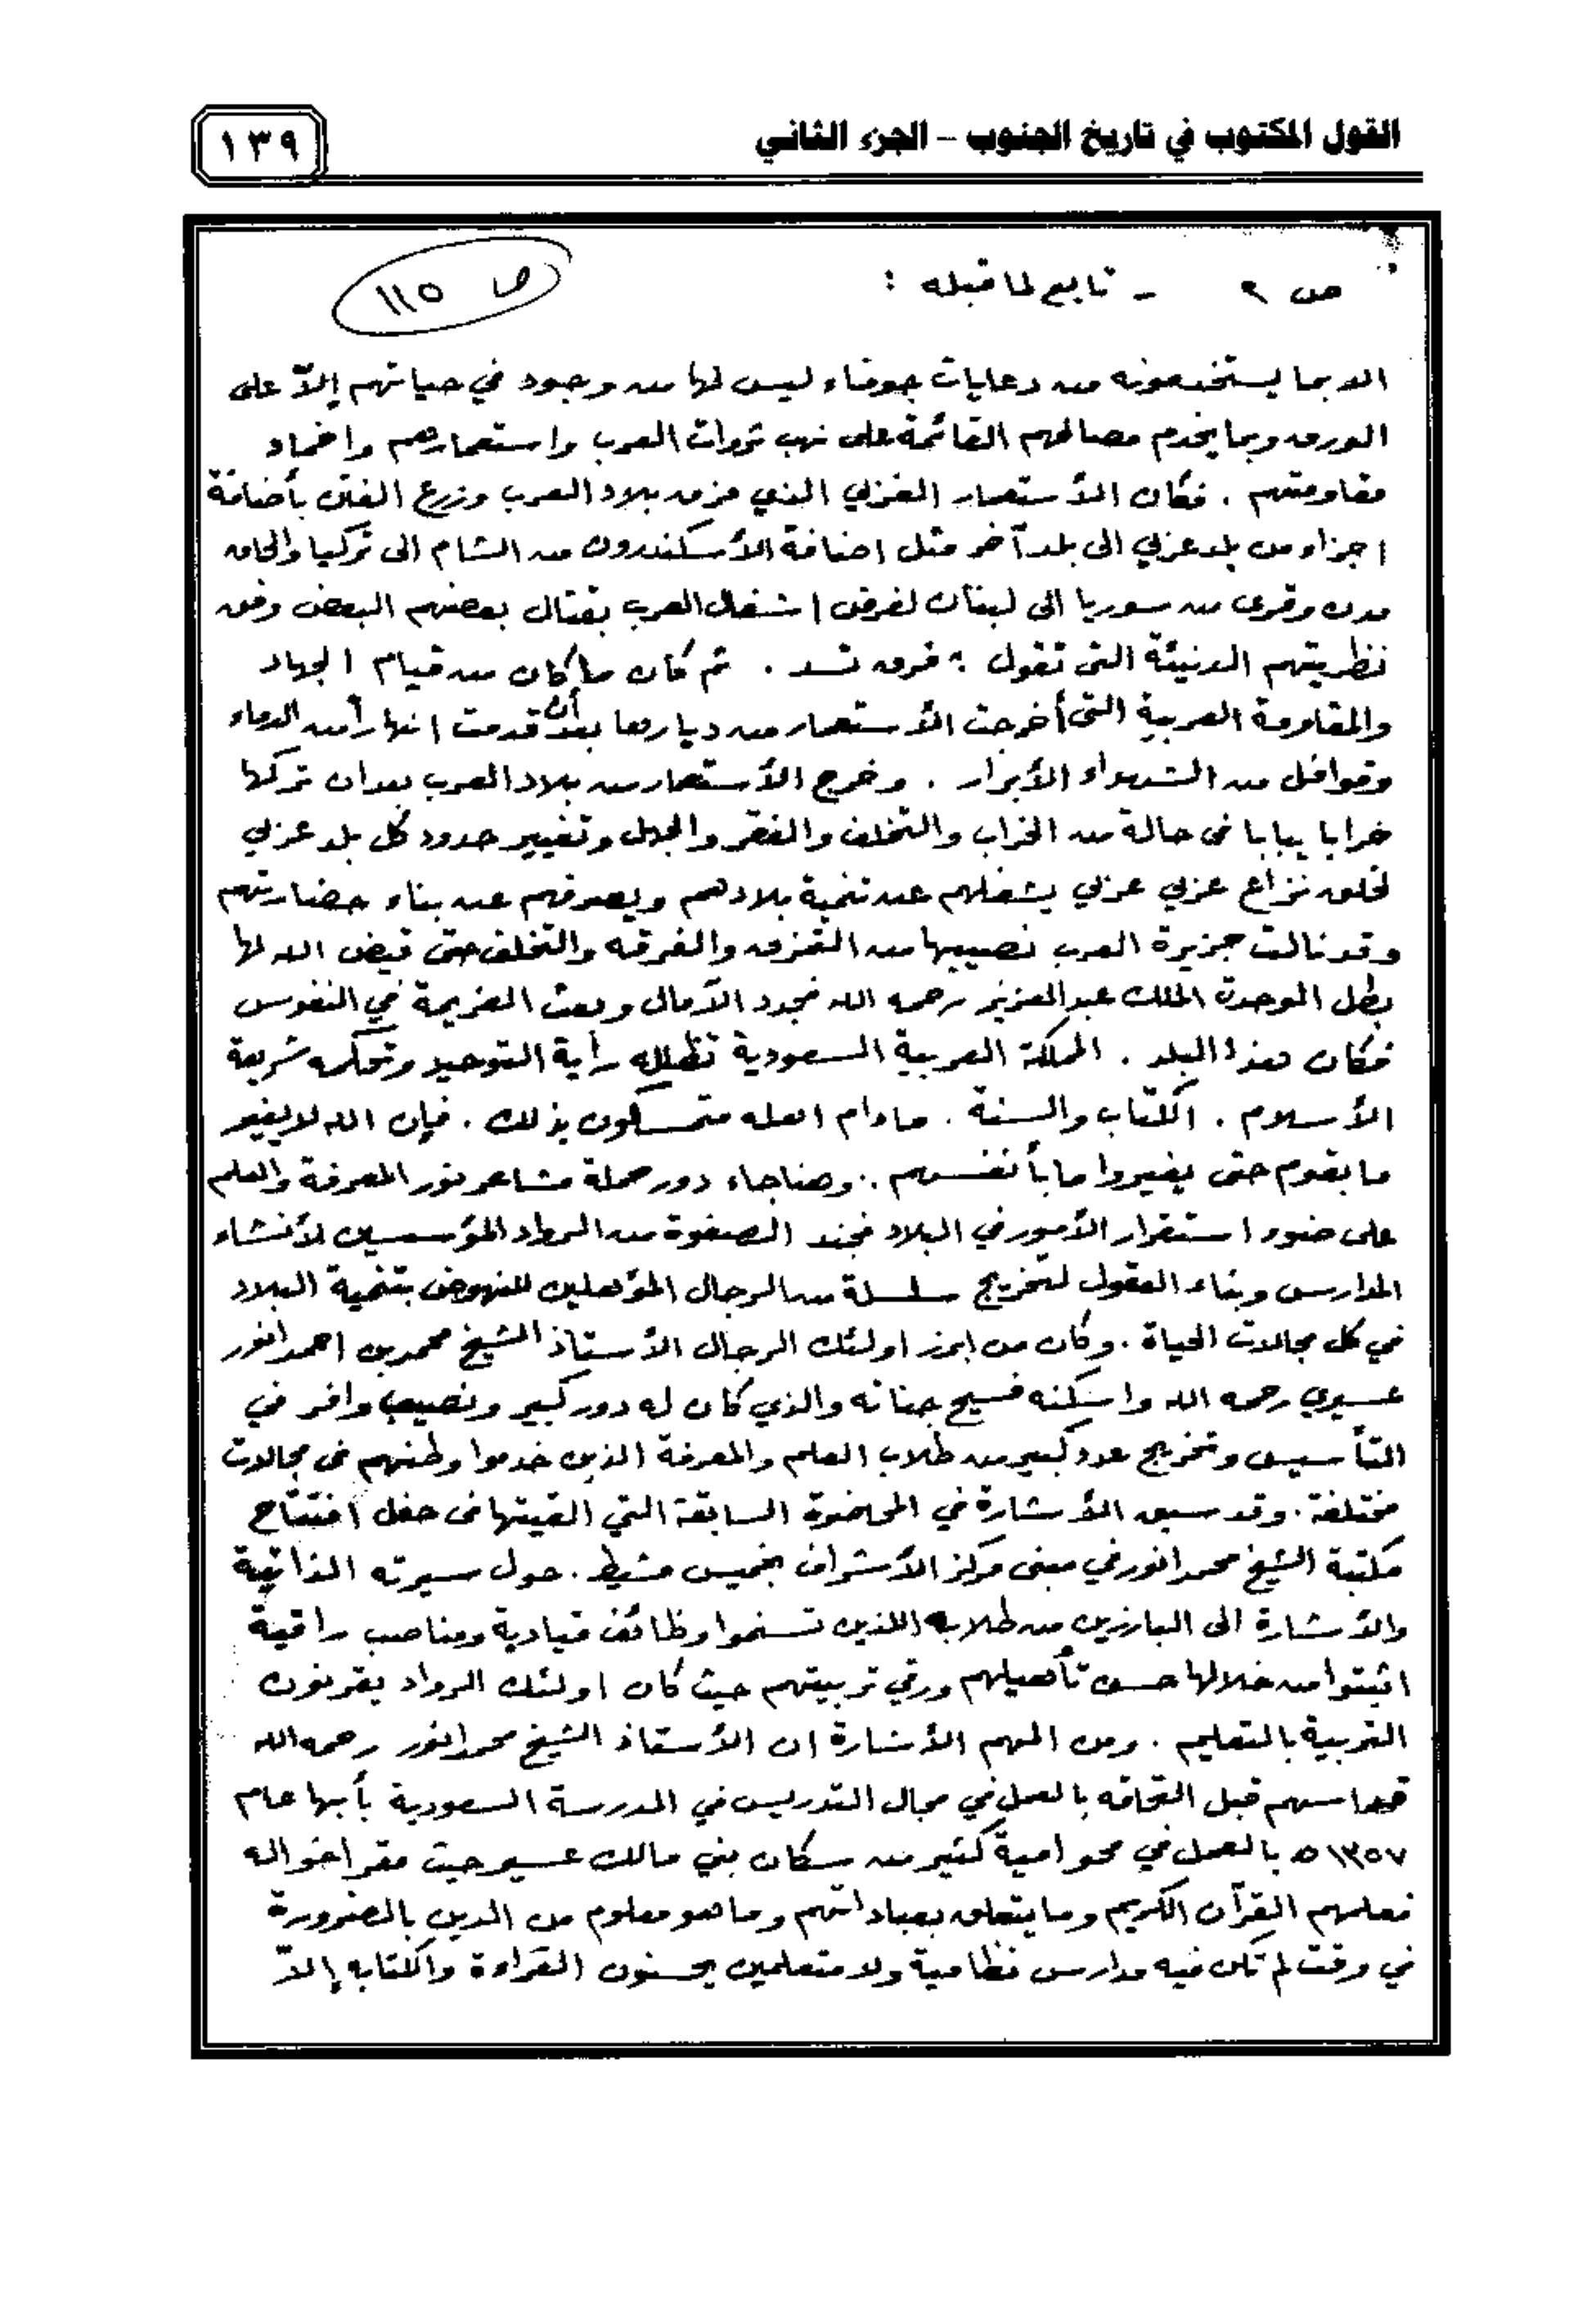 القول المكتوب في تاريخ الجنوب – الجزء الثاني
١٣٩
ص ٢ – تابع لما قبله :
ص ١١٥
الا بما يستخدمونه من دعايات جوفاء ليس لها من وجود في حياتهم إلاّ على
الورق وبما يخدم مصالحهم القائمة على نهب ثروات العرب واستعمارهم واخماد
مقاومتهم . فكان الأستعمار الغربي الذي مزق بلاد العرب وزرع الفتن بأضافة
اجزاء من بلد عربي الى بلد آخر مثل اضافة الأسكندرون من الشام الى تركيا والحاق
مدن وقرى من سوريا الى لبنان لغرض اشغال العرب بقتال بعضهم البعض وفق
نظريتهم الدنيئة التي تقول : فرق تسد . ثم كان ما كان من قيام الجهاد
والمقاومة العربية التي أخرجت الأستعمار من ديارها بعد أن قدمت انهاراً من الدماء
وقوافل من الشهداء الأبرار . وخرج الأستعمار من بلاد العرب بعد ان تركها
خرابا يبابا في حالة من الخراب والتخلف والفقر والجهل وتغيير حدود كل بلد عربي
لخلق نزاع عربي عربي يشغلهم عن تنمية بلادهم ويصرفهم عن بناء حضارتهم
وقد نالت جزيرة العرب نصيبها من التمزق والفرقه والتخلف حتى قيض الله لها
بطل الوحدة الملك عبدالعزيز رحمه الله فجدد الآمال وبعث العزيمة في النفوس
فكان هذا البلد . المملكة العربية السعودية تظلله رأية التوحيد وتحكمه شريعة
الأسلام . الكتاب والسنة . مادام اهله متمسكون بذلك . فإن الله لا يغير
ما بقوم حتى يغيروا ما بأنفسهم .. وهنا جاء دور حملة مشاعر نور المعرفة والعلم
على ضوء استقرار الأمور في البلاد فجند الصفوة من الرواد المؤسسين لأنشاء
المدارس وبناء العقول لتخريج سلسلة من الرجال المؤهلين للنهوض بتنمية البلاد
في كل مجالات الحياة . وكان من ابرز اولئك الرجال الأستاذ الشيخ محمد بن احمد انور
عسيري رحمه الله واسكنه فسيح جناته والذي كان له دور كبير ونصيب وافر في
التأسيس وتخريج عدد كبير من طلاب العلم والمعرفة الذين خدموا وطنهم في مجالات
مختلفة . وقد سبق الأشارة في المحاضرة السابقة التي القيتها في حفل افتتاح
مكتبة الشيخ محمد انور في مبنى مركز الأشراف بخميس مشيط . حول سيرته الذاتية
والأشارة الى البارزين من طلابه اللذين تسنموا وظائف قيادية ومناصب راقية
اثبتوا من خلالها حسن تأهيلهم ورقي تربيتهم حيث كان اولئك الرواد يقرنون
التربية بالتعليم . ومن المهم الأشارة ان الأستاذ الشيخ محمد انور رحمه الله
قد اسهم قبل التحاقه بالعمل في مجال التدريس في المدرسة السعودية بأبها عام
١٣٥٧ه بالعمل في محو امية كثير من سكان بني مالك عسير حيث مقر اخواله
فعلمهم القرآن الكريم وما يتعلق بعباداتهم وما هو معلوم من الدين بالضرورة
في وقت لم تكن فيه مدارس نظامية ولا متعلمين يحسنون القراءة والكتابه إلاّ